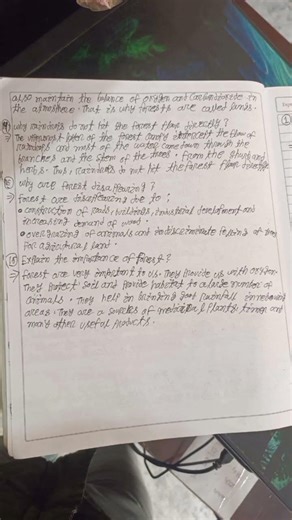 also maintain the balance of oxygen and carbondioxide in
the atmosphere. That is why forests are called lungs.
why raindrops do not hit the forest floor directly?
=> The uppermost layer of the forest canopy the flow of
raindrops and most of the water come down through the
branches and the stem of the trees. From the shrub and
herbs. Thus, raindrops do not hit the forest floor directly
why are forest disappearing?
=> Forest are disappearing due to:
• construction of roads, buildings, industrial development and
increasing demand of wood.
• overgrazing of animals and indiscriminate felling of trees
for agricultural land.
Explain the importance of forest?
=> Forest are very important to us. They provide us with oxygen.
They protect soil and provide habitat to a large number of
animals. They help in bringing good rainfall in
areas. They are a sources of medicinal plants, timber and
many other useful products.